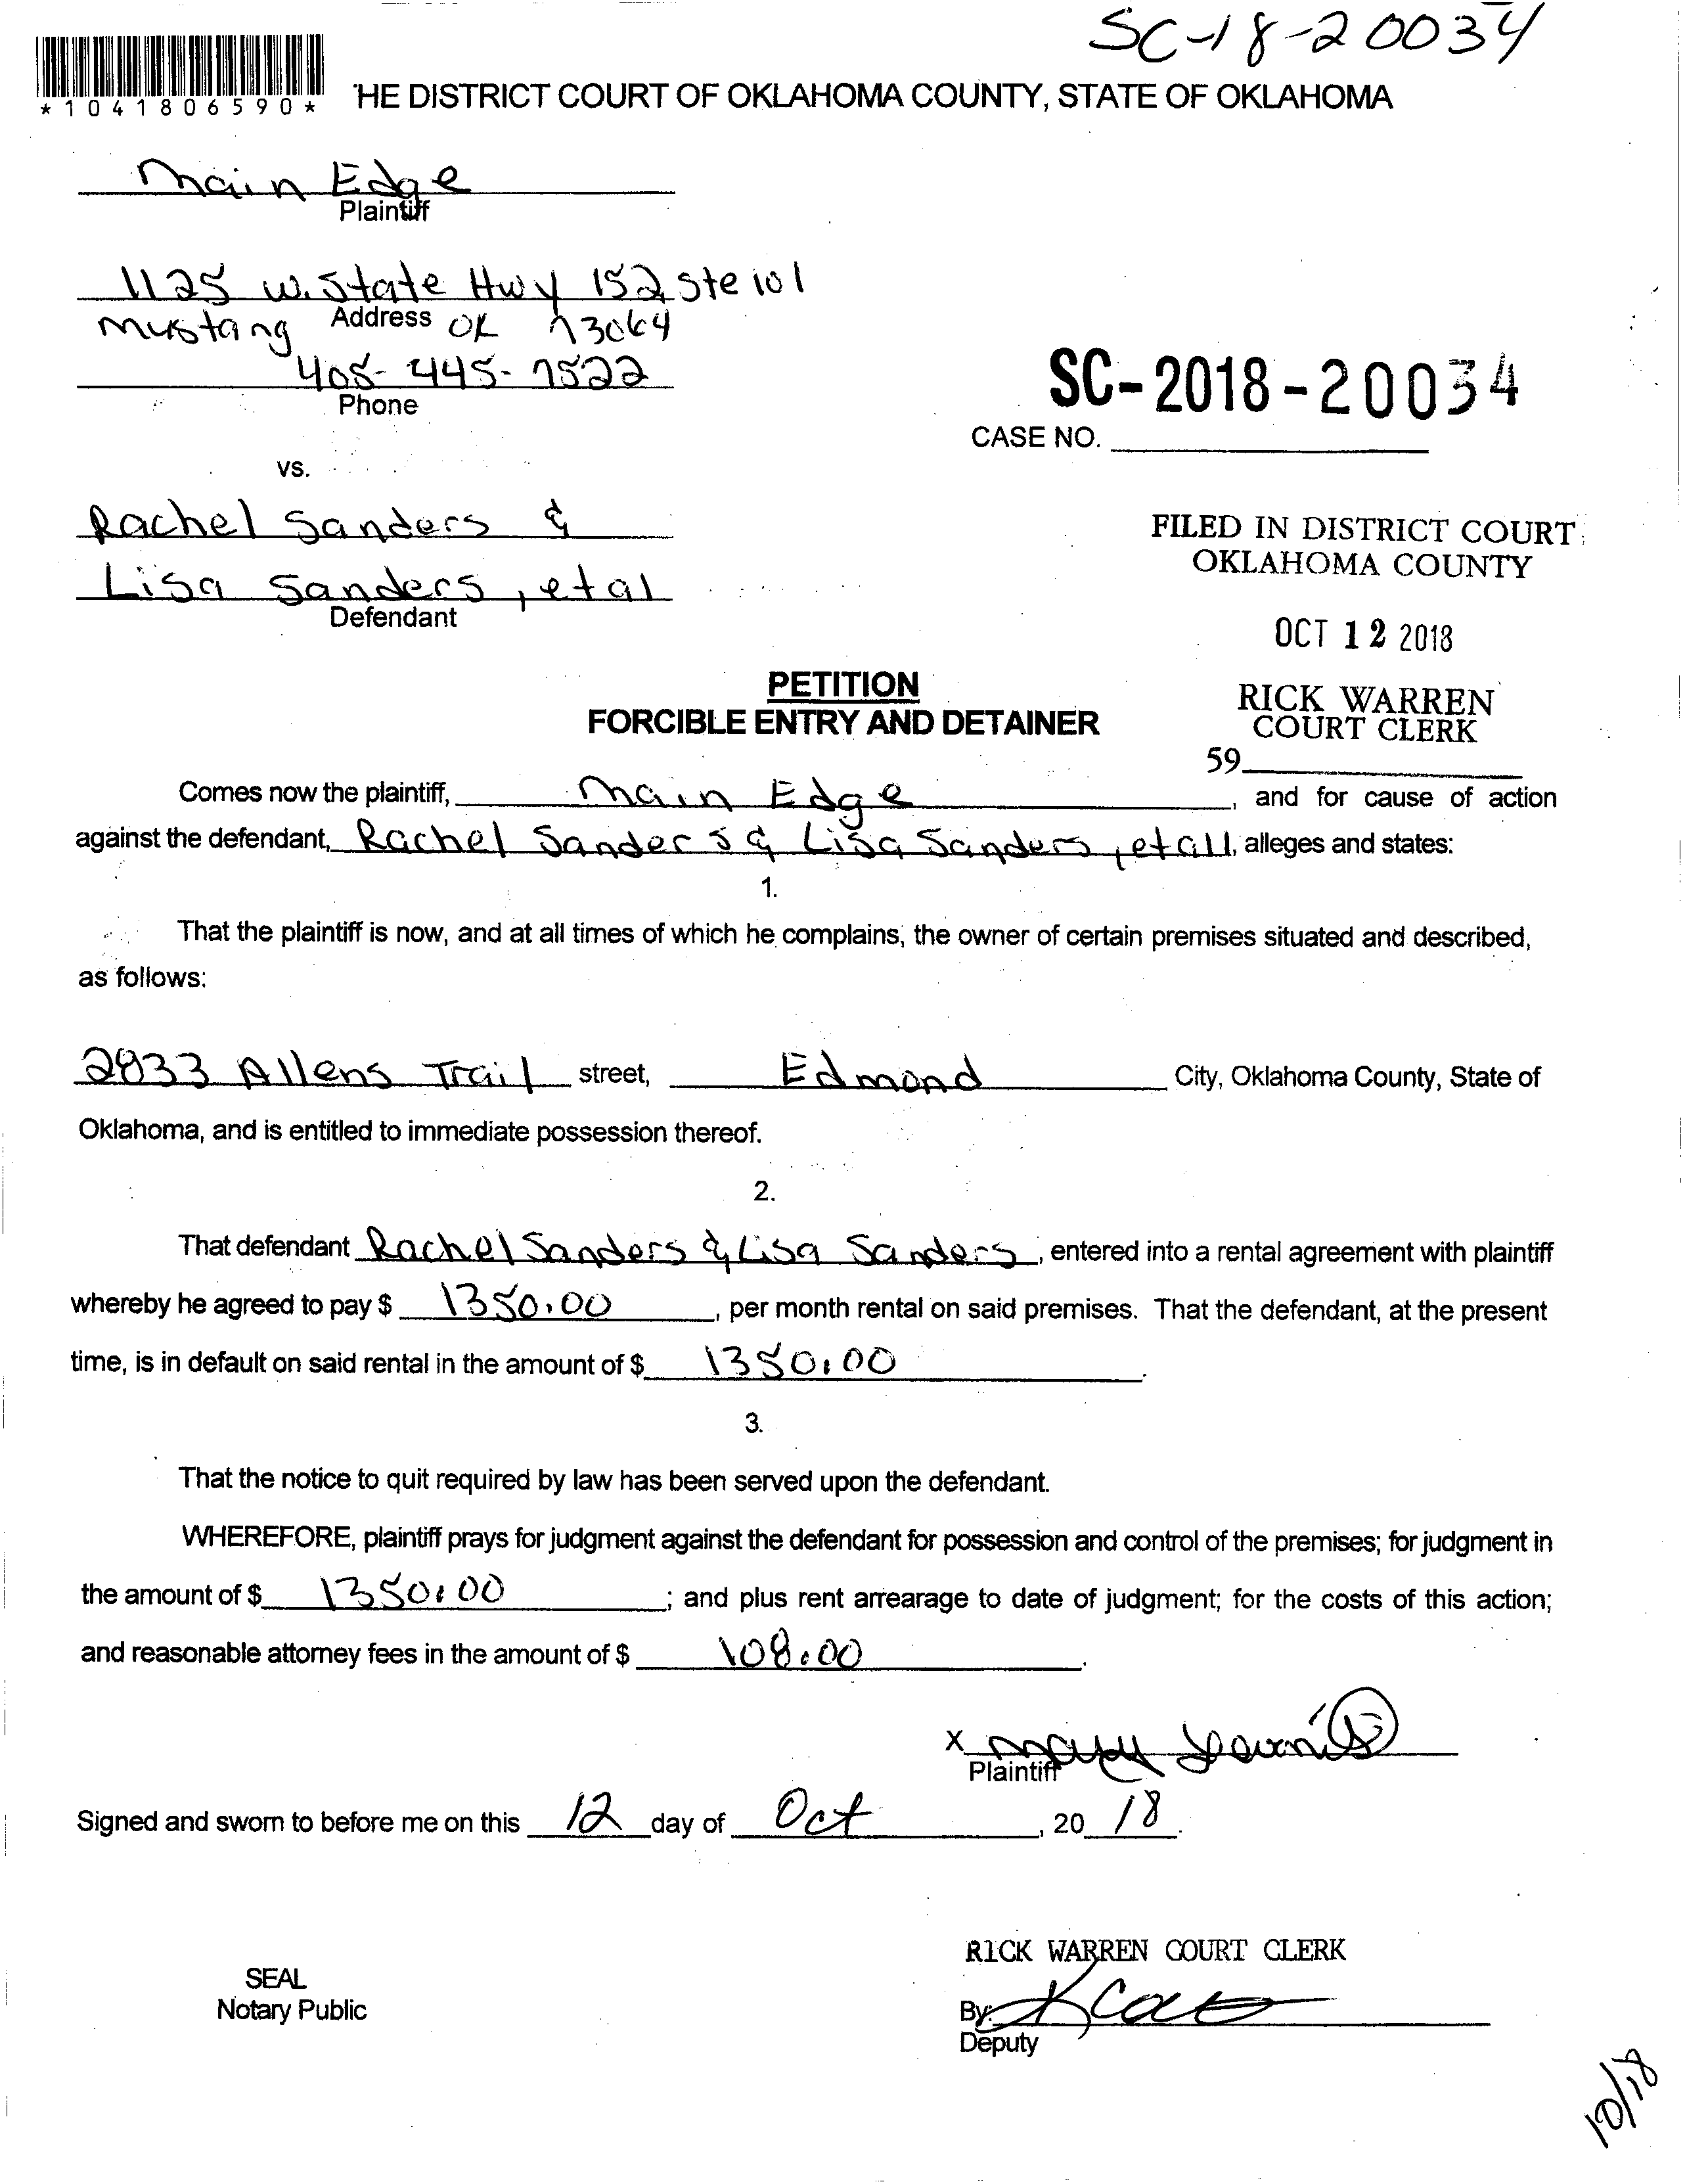 SC-18-20034
*1041806590*
HE DISTRICT COURT OF OKLAHOMA COUNTY, STATE OF OKLAHOMA
Main Edge
Plaintiff
1125 W. State Hwy 152 Ste 101
Address
Mustang OK 73064
405-445-7522
Phone
SC-2018-20034
CASE NO.
vs.
Rachel Sanders &
Lisa Sanders, et al
Defendant
FILED IN DISTRICT COURT
OKLAHOMA COUNTY
OCT 12 2018
RICK WARREN
COURT CLERK
59
PETITION
FORCIBLE ENTRY AND DETAINER
Comes now the plaintiff, Main Edge, and for cause of action
against the defendant, Rachel Sanders & Lisa Sanders, et all, alleges and states:
1.
That the plaintiff is now, and at all times of which he complains, the owner of certain premises situated and described,
as follows:
2833 Allens Trail street, Edmond City, Oklahoma County, State of
Oklahoma, and is entitled to immediate possession thereof.
2.
That defendant Rachel Sanders & Lisa Sanders, entered into a rental agreement with plaintiff
whereby he agreed to pay $ 1350.00, per month rental on said premises. That the defendant, at the present
time, is in default on said rental in the amount of $ 1350.00.
3.
That the notice to quit required by law has been served upon the defendant.
WHEREFORE, plaintiff prays for judgment against the defendant for possession and control of the premises; for judgment in
the amount of $ 1350.00; and plus rent arrearage to date of judgment; for the costs of this action;
and reasonable attorney fees in the amount of $ 108.00.
X Mary
Plaintiff
Signed and sworn to before me on this 12 day of Oct, 20 18.
RICK WARREN COURT CLERK
SEAL
Notary Public
By:
Deputy
10/18